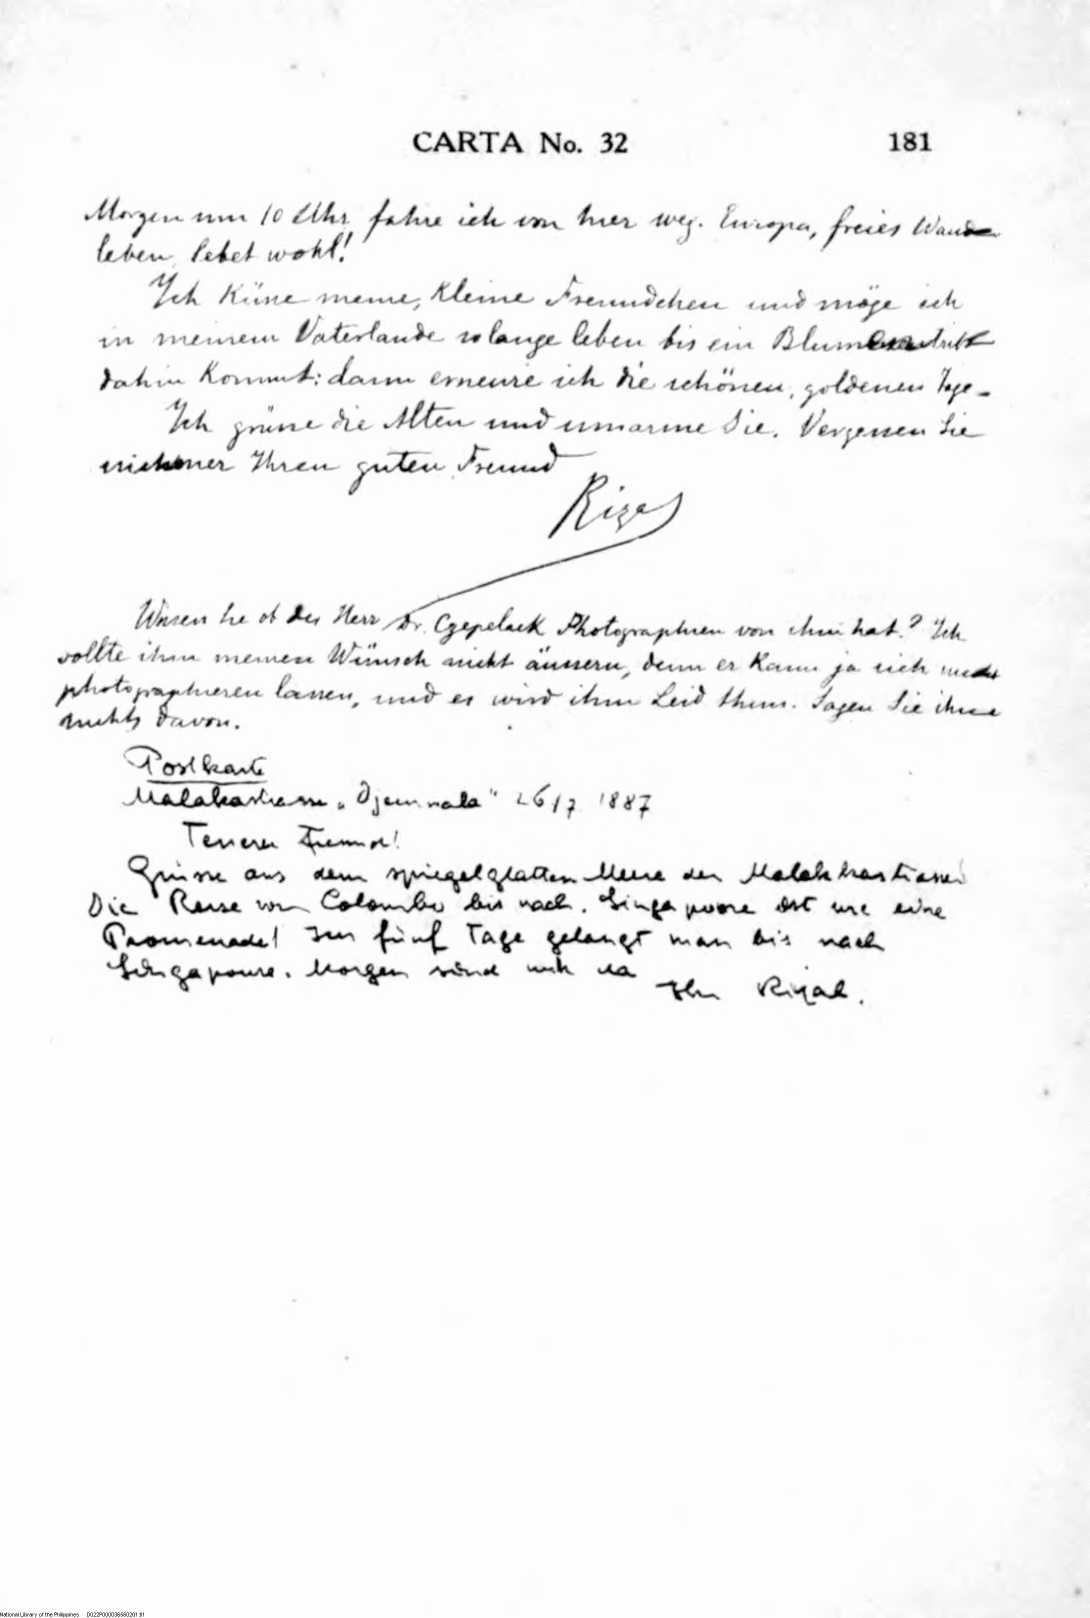 CARTA No. 32 181
Morgen um 10 Uhr fahre ich von hier weg. Europa, freies
leben, lebet wohl!
Ich Küsse meine, Kleine Freundchen und möge ich
in meinem Vaterlande solange leben bis ein
dahin Kommt: dann erneure ich die schönen, goldenen Tage.
Ich grüsse die Alten und umarme Sie. Vergessen Sie
Ihren guten Freund
Rizal
Wissen Sie ob der Herr Dr. Czepelack Photographien von ihm hat? Ich
sollte ihm meinen Wünsch nicht äussern, denn er Kann ja sich nicht
photographieren lassen, und es wird ihm Leid thun. Sagen Sie ihm
nichts davon.
Postkarte
Malakastrasse „Djemnah" 26/7 1887
Teurer Freund!
Grüsse aus dem spiegelglatten Meere der
Die Reise von Colombo bis nach. Singapoore ist wie eine
Promenade! In fünf Tage gelangt man bis nach
Singapoure. Morgen sind wir da
Ihr Rizal.
National Library of the Philippines